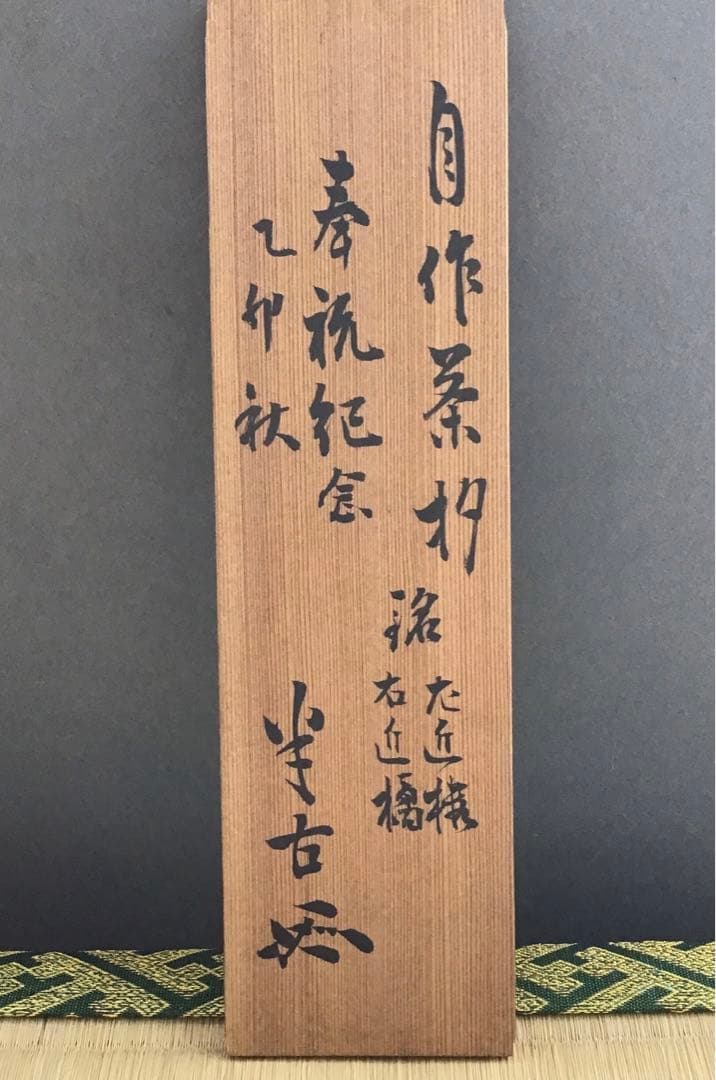 自作茶杓
銘
左近桜
右近橘
奉祝紀念
乙卯秋
半古